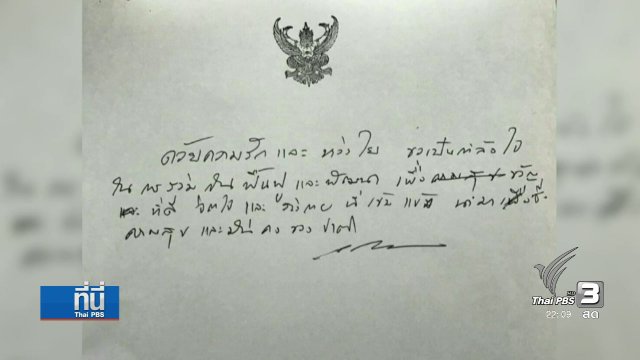 ด้วยความรัก และ ห่วงใย ขอเป็นกำลังใจ
ในการร่วมกันฟื้นฟู และพัฒนา เพื่อ ขวัญ
ที่ดี จิตใจ และ ร่างกาย ที่เข้มแข็ง นำมาซึ่ง
ความสุข และมั่นคง ของ ชาติ
ที่นี่
Thai PBS
Thai PBS HD 3
22:09 สด